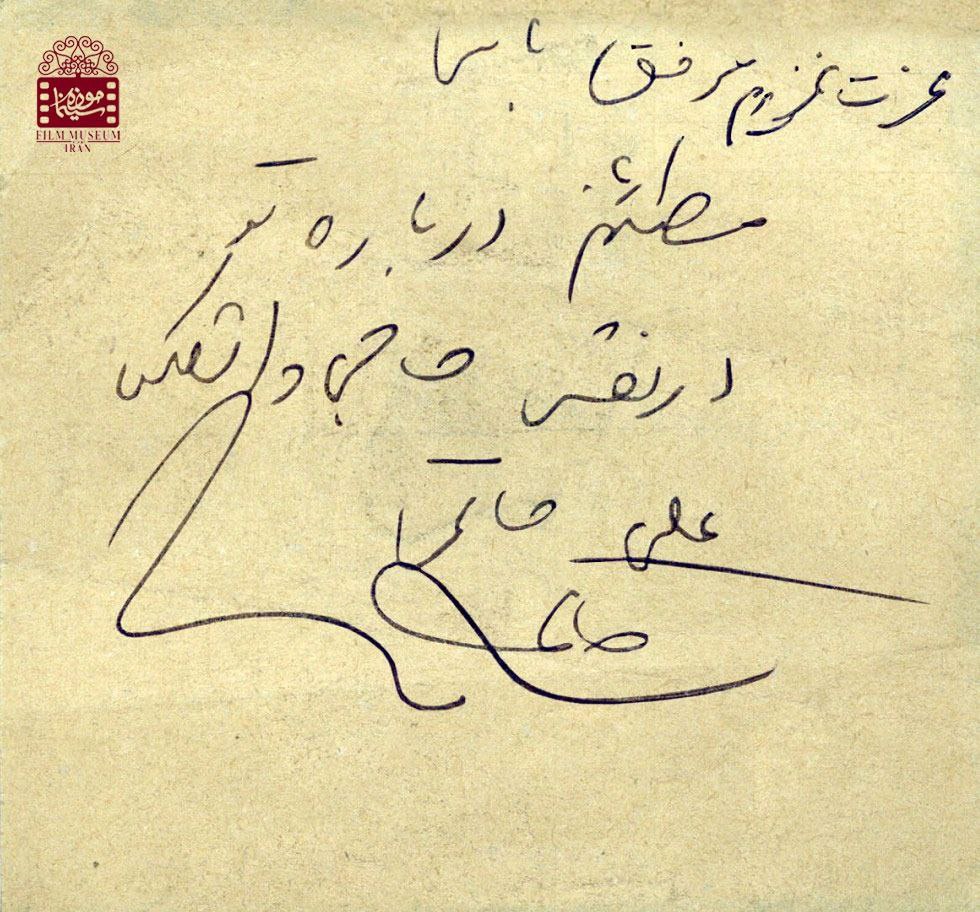 موزه سینما
FILM MUSEUM
IRAN
عزت عزیزم موفق باشی
مطمئنم درباره تو
در نقش حاجی واشنگتن
علی حاتمی